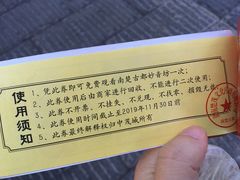 使用须知
1、凭此券即可免费观看南楚古都妙音坊一次;
2、此券使用后由商家进行回收,不能进行二次使用;
3、此券不开票、不挂失、不兑现、不找零、损毁无
4、此券使用时间截止至2019年11月30日前
5、此券最终解释权归中茂城所有